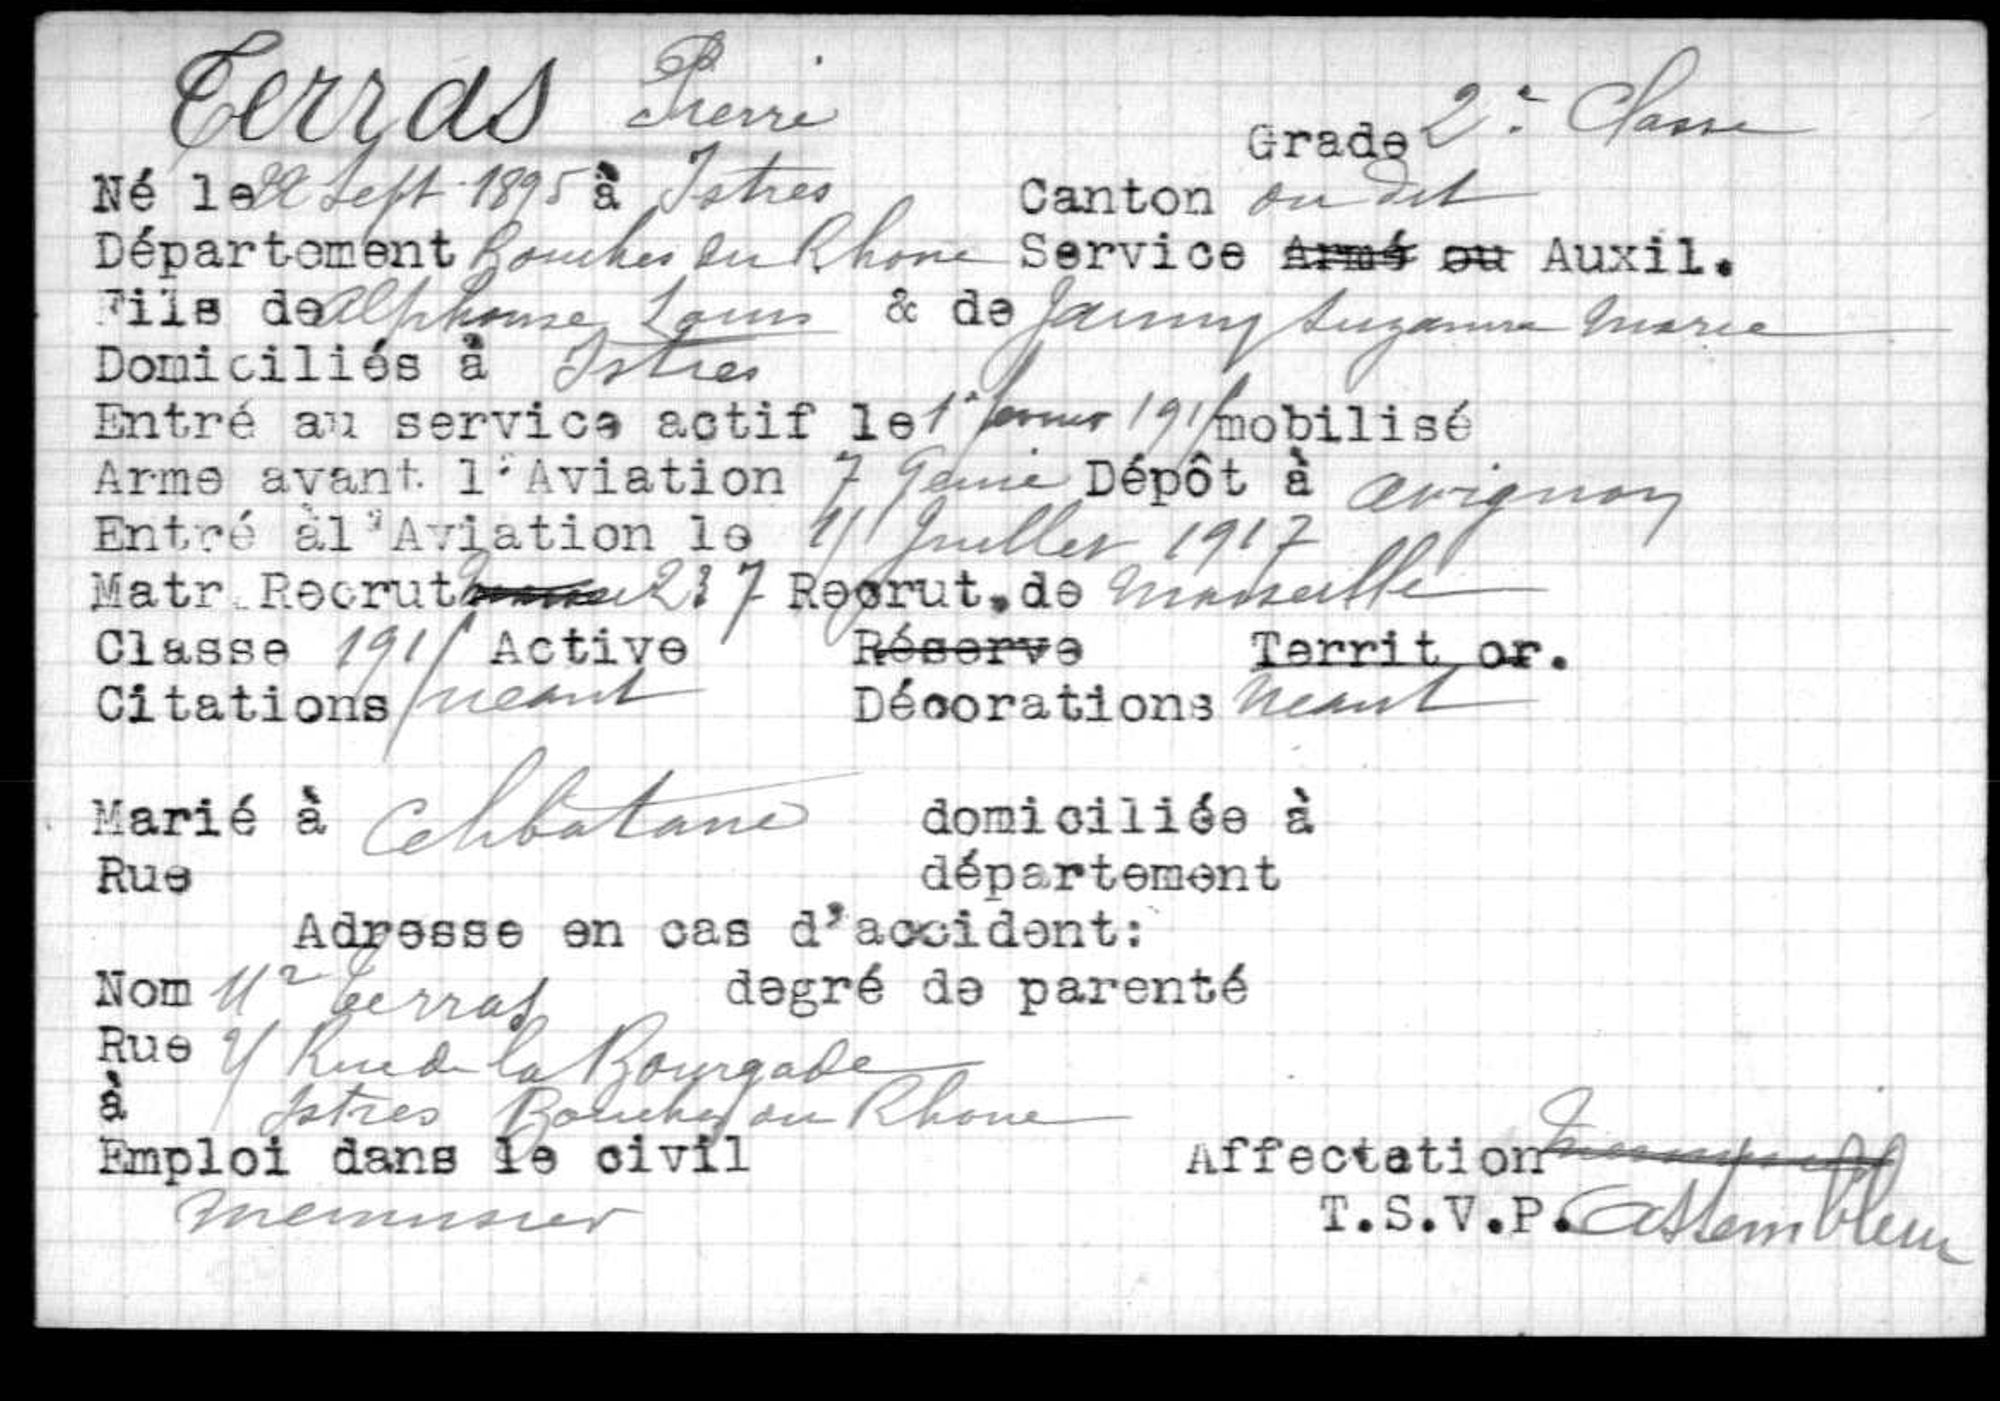 Terras Pierre
Grade 2e Classe
Né le 22 Sept 1895 à Istres Canton du dit
Département Bouches du Rhone Service Armé ou Auxil.
Fils de Alphonse Louis & de Janny Suzanne Marie
Domiciliés à Istres
Entré au service actif le 1r 1915 mobilisé
Arme avant l'Aviation 7 Génie Dépôt à Avignon
Entré à l'Aviation le Juillet 1917
Matr. Recrut Recrut. de Marseille
Classe 1915 Active Réserve Territ or.
Citations néant Décorations néant
Marié à Célibataire domiciliée à
Rue département
Adresse en cas d'accident:
Nom Mr Terras degré de parenté
Rue Rue de la Bourgade
à Istres Bouches du Rhone
Emploi dans le civil Affectation
menuisier T.S.V.P. Assembleur